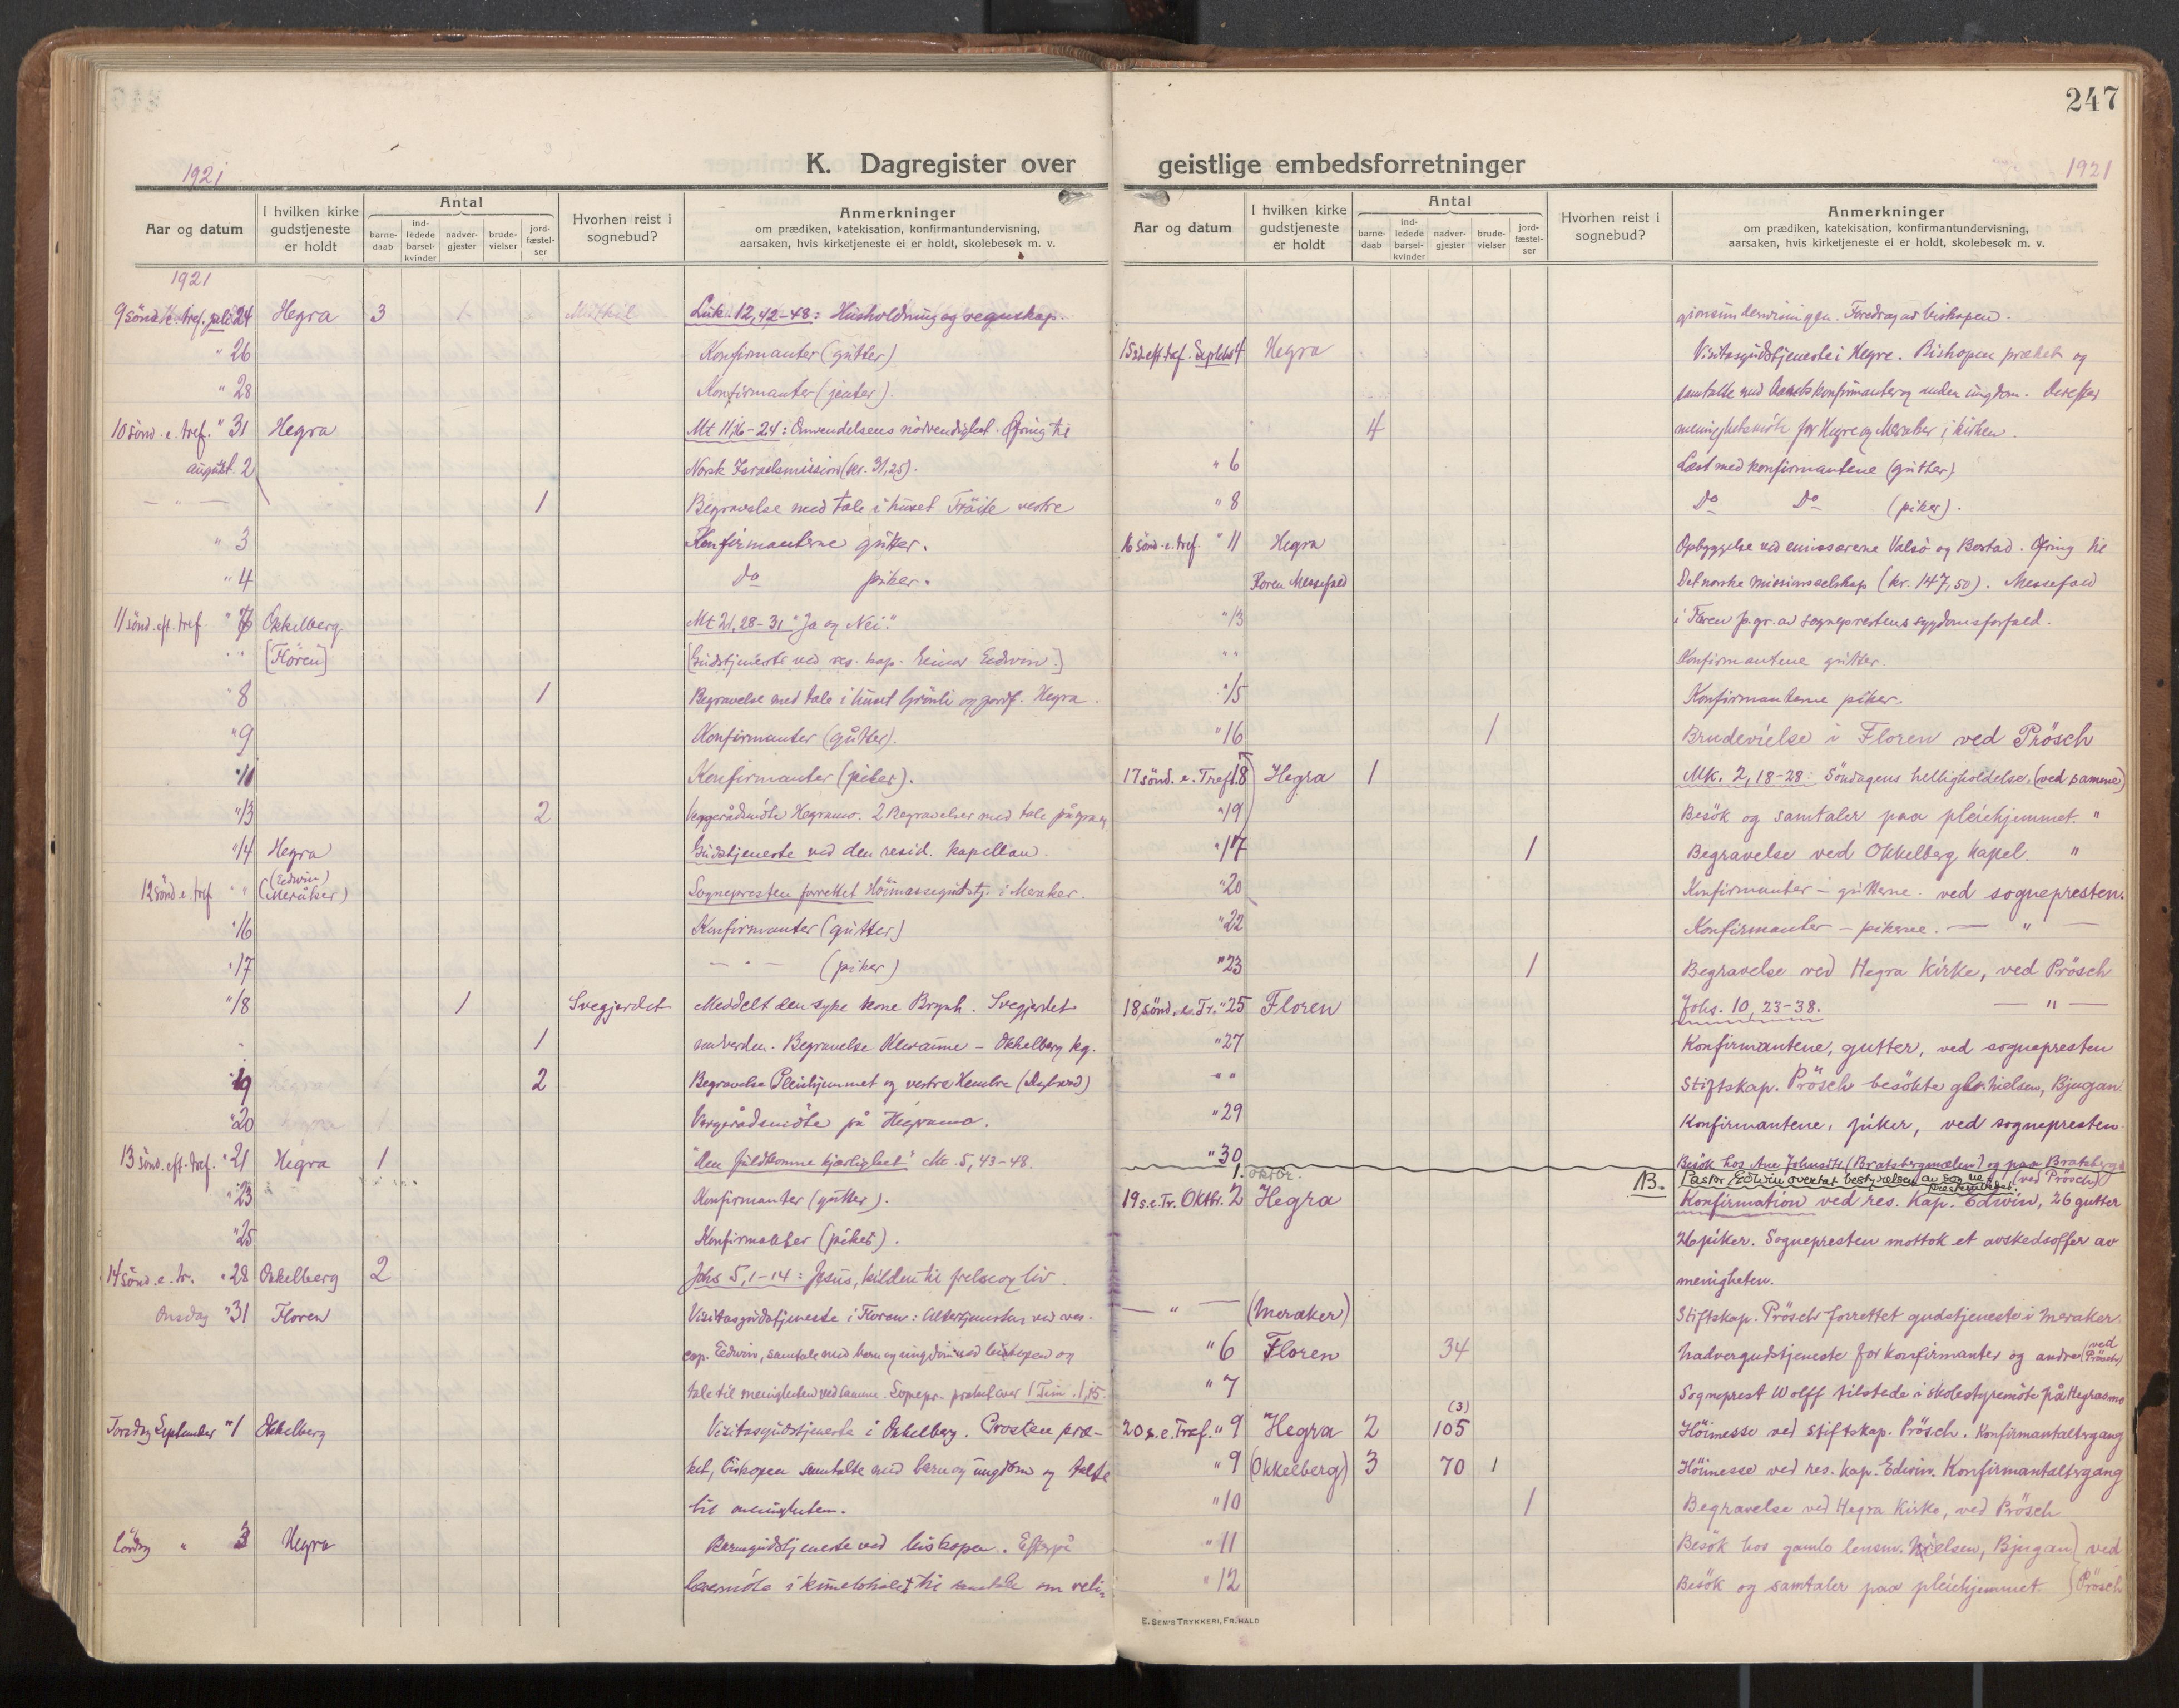 247
1921
K. Dagregister over
geistlige embedsforretninger
1921
Aar og datum
I hvilken kirke gudstjeneste er holdt
Antal
barne-daab
ind-ledede barsel-kvinder
nadver-gjester
brude-vielser
jord-fæstel-ser
Hvorhen reist i sognebud?
Anmerkninger
om prædiken, katekisation, konfirmantundervisning,
aarsaken, hvis kirketjeneste ei er holdt, skolebesøk m. v.
1921
9 sönd. e. tref. juli 24 Hegra 3 Luk. 12,42-48: Husholdning og regnskap.
" 26 Konfirmanter (gutter)
" 28 Konfirmanter (jenter).
10 sönd. e. tref. " 31 Hegra Mt 11,16-24: Omvendelsens nödvendighet. Ofring til
august. 2 Norsk Israelsmission (kr. 31,25).
— " — 1 Begravelse med tale i huset Tröite vestre
" 3 Konfirmanterne gutter.
" 4 Do piker.
11 sönd. eft. tref. " Okkelberg Mt 21,28-31 "Ja og Nei."
" " [Flören] [Gudstjeneste ved res. kap. Einar Eedwin.]
" 8 1 Begravelse med tale i huset Grönli og jordf. Hegra.
" 9 Konfirmanter (gutter).
" 11 Konfirmanter (piker).
" 13 2 Vergerådsmöte Hegramo. 2 Begravelser med tale på
" 14 Hegra Gudstjeneste ved den resid. kapellan.
(Eedwin)
12 sönd e. tref " " (Meråker) Sognepresten forrettet Höimessegudstj. i Meraker.
" 16 Konfirmanter (gutter)
" 17 — " — (piker)
" 18 1 Svegjerdet Meddelt den syke kone Svegjerdet
" 1 nadverden. Begravelse Kleivaune - Okkelberg kg.
" 19 2 Begravelse Pleiehjemmet og vestre Hembre
" 20 Vergerådsmöte på Hegramo.
13 sönd. eft. tref. " 21 Hegra 1 "Den fuldkomne kjærlighet." Mt. 5,43-48.
" 23 Konfirmanter (gutter).
" 25 Konfirmanter (piker).
14 sönd. e. tr. " 28 Okkelberg 2 Johs 5,1-14: Jesus, kilden til frelse og liv.
Onsdag " 31 Floren Visitasgudstjeneste i Floren: Altertjenesten ved res.
cap. Eedwin, samtale med barn og ungdom ved biskopen og
tale til menigheten ved samme. Sognepr. præket over 1 Tim. 1,15.
Torsdag September " 1 Okkelberg Visitasgudstjeneste i Okkelberg. Prosten præ-
ket, biskopen samtalte med barn og ungdom og talte
til menigheten.
Lördag " 3 Hegra Barnegudstjeneste ved biskopen. Efterpå
lærermöte i til samtale om reli-
Aar og datum
I hvilken kirke gudstjeneste er holdt
Antal
barne-daab
ind-ledede barsel-kvinder
nadver-gjester
brude-vielser
jord-fæstel-ser
Hvorhen reist i sognebud?
Anmerkninger
om prædiken, katekisation, konfirmantundervisning,
aarsaken, hvis kirketjeneste ei er holdt, skolebesøk m. v.
gionsundervisningen. Foredrag av biskopen.
15 sd. eft tref. Septbr 4 Hegra Visitasgudstjeneste i Hegra. Biskopen præket og
samtalte med årets konfirmanter og anden ungdom. Derefter
4 menighetsmöte for Hegra og Meraker i kirken.
" 6 Læst med konfirmantene (gutter)
" 8 Do Do (piker).
16 sönd. e. tref. " 11 Hegra Opbyggelse ved emissærerne Valsö og Bostad. Ofring til
Floren Messefald Det norske missionsselskap (kr. 147,50). Messefald
" 13 i Floren p. gr. av sogneprestens sygdomsforfald.
" " Konfirmantene gutter.
" 15 Konfirmanterne piker.
" 16 1 Brudevielse i Floren ved Prösch
17 sönd. e. Tref. 18 Hegra 1 Mk. 2, 18-28: Söndagens helligholdelse. (ved samme)
" 19 Besök og samtaler paa pleiehjemmet. "
" 17 1 Begravelse ved Okkelberg kapel. "
" 20 Konfirmanter - gutterne. ved sognepresten.
" 22 Konfirmanter - pikerne. — " —
" 23 1 Begravelse ved Hegra Kirke, ved Prösch
18 sönd. e. Tr. " 25 Floren Johs. 10, 23-38. — " —
" 27 Konfirmantene, gutter, ved sognepresten
" " Stiftskap. Prösch besökte Nielsen, Bjugan.
" 29 Konfirmantene, piker, ved sognepresten
" 30 Besök hos Ane Johnsdtr. (Bratsbergmælen) og paa Bratsberg
(ved Prösch)
1. oktbr. B. Pastor Edwin overtat bestyrelsen av sogneprestembedet.
19 s. e. Tr. Oktbr. 2 Hegra Konfirmation ved res. kap. Edwin, 26 gutter
piker. Sognepresten mottok et avskedsoffer av
menigheten.
— " — (Meraker) Stiftskap. Prösch forrettet gudstjeneste i Meraker.
" 6 Floren 34 Nadvergudstjeneste for konfirmanter og andre (ved Prösch)
" 7 Sogneprest Wolff tilstede i skolestyremöte på Hegramo
(3)
20 s. e. Tref. " 9 Hegra 2 105 Höimesse ved stiftskap. Prösch. Konfirmantaltergang
" 9 (Okkelberg) 3 70 1 Höimesse ved res. kap. Edwin. Konfirmantaltergang
" 10 1 Begravelse ved Hegra Kirke, ved Prösch
" 11 Besök hos gamle lensm. Nielsen, Bjugan } ved
" 12 Besök og samtaler paa pleiehjemmet } Prösch
E. SEM'S TRYKKERI, FR.HALD